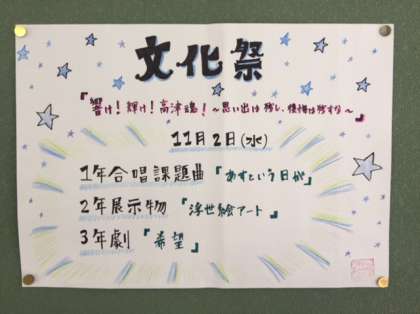 文化祭
『響け!輝け!高津魂!~思い出は残し、後悔は残すな~』
11月2日(水)
1年合唱課題曲『あすという日が』
2年展示物『浮世絵アート』
3年劇『希望』